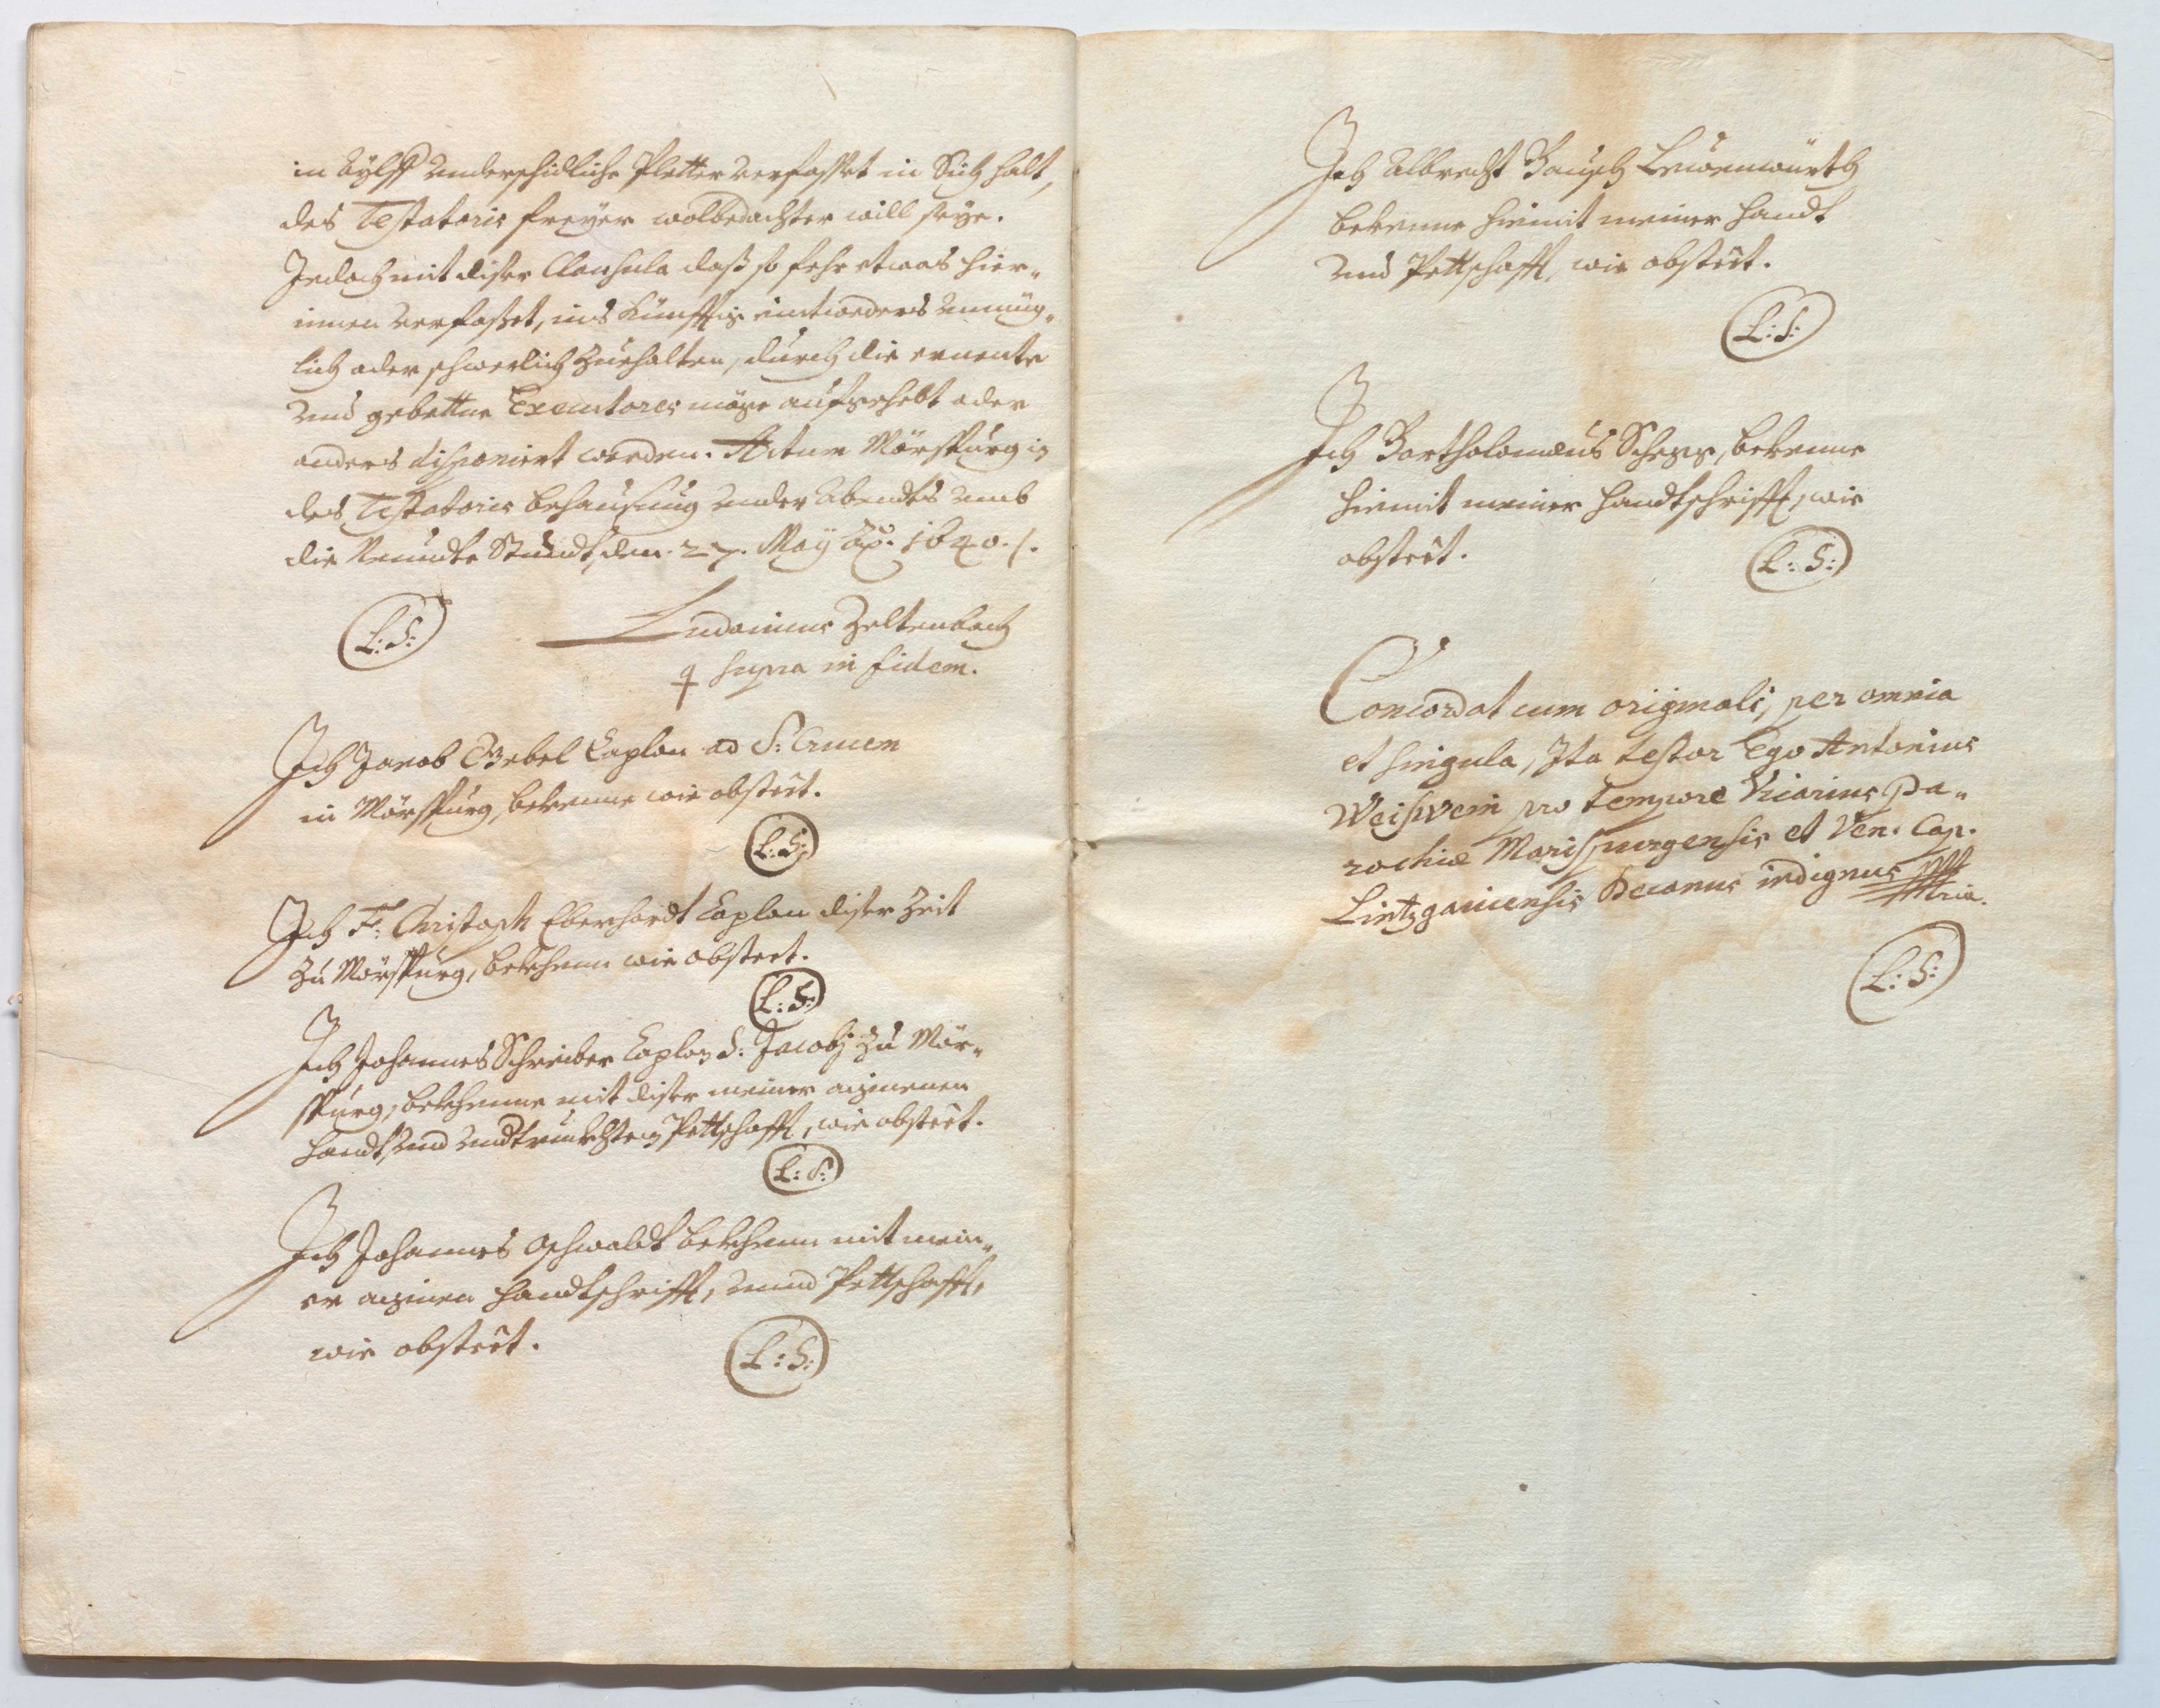 in Eylff underschidliche Pletter verfasset in Sich halt,
des Testatoris freyer wolbedachter will seye.
Jedoch mit diser Clausula daß so fehr etwas hier„
innen verfasset, ins künfftig eintweders unmüg„
lich oder schwerlich zuehalten, durch die ernente
und gebettne Executores möge aufgehebt oder
anders disponiert werden. Actum Mörspurg in
des Testatoris behausung under Abendts umb
die Neundte Stundt, den. 27. May Ao. 1640./.
L: S:
Ludovicus Zeltenbach
q supra in fidem.
Ich Jacob Gebel Caplan ad S: Crucem
in Mörspurg, bekenne wie obsteet.
L: S:
Ich Fr: Christoph Eberhardt Caplan diser Zeit
zu Mörspurg, bekhenn wie obsteet.
L: S:
Ich Johannes Schreiber Caplan S: Jacobj zu Mör„
spurg, bekhenne mit diser meiner aigenen
Handt, und undtruckhten Pettschafft, wie obsteet.
L: S:
Ich Johannes Oschwaldt bekhenn mit mein„
er aignen Handtschrifft, unnd Pettschafft,
wie obsteet.
L: S:
Ich Albrecht Bausch Lewenwürth
bekenne hiemit meiner Handt
und Pettschafft, wie obsteet.
L: S:
Ich Bartholomæus Schepp, bekenne
hiemit meiner Handtschrifft, wie
obsteet.
L: S:
Concordat cum originali, per omnia
et singula, Ita testor Ego Antonius
Weiswein pro tempore Vicarius Pa„
rochiæ Morispurgensis et Ven: Cap.
Lintzgaviensis Decanus indignus
L: S: